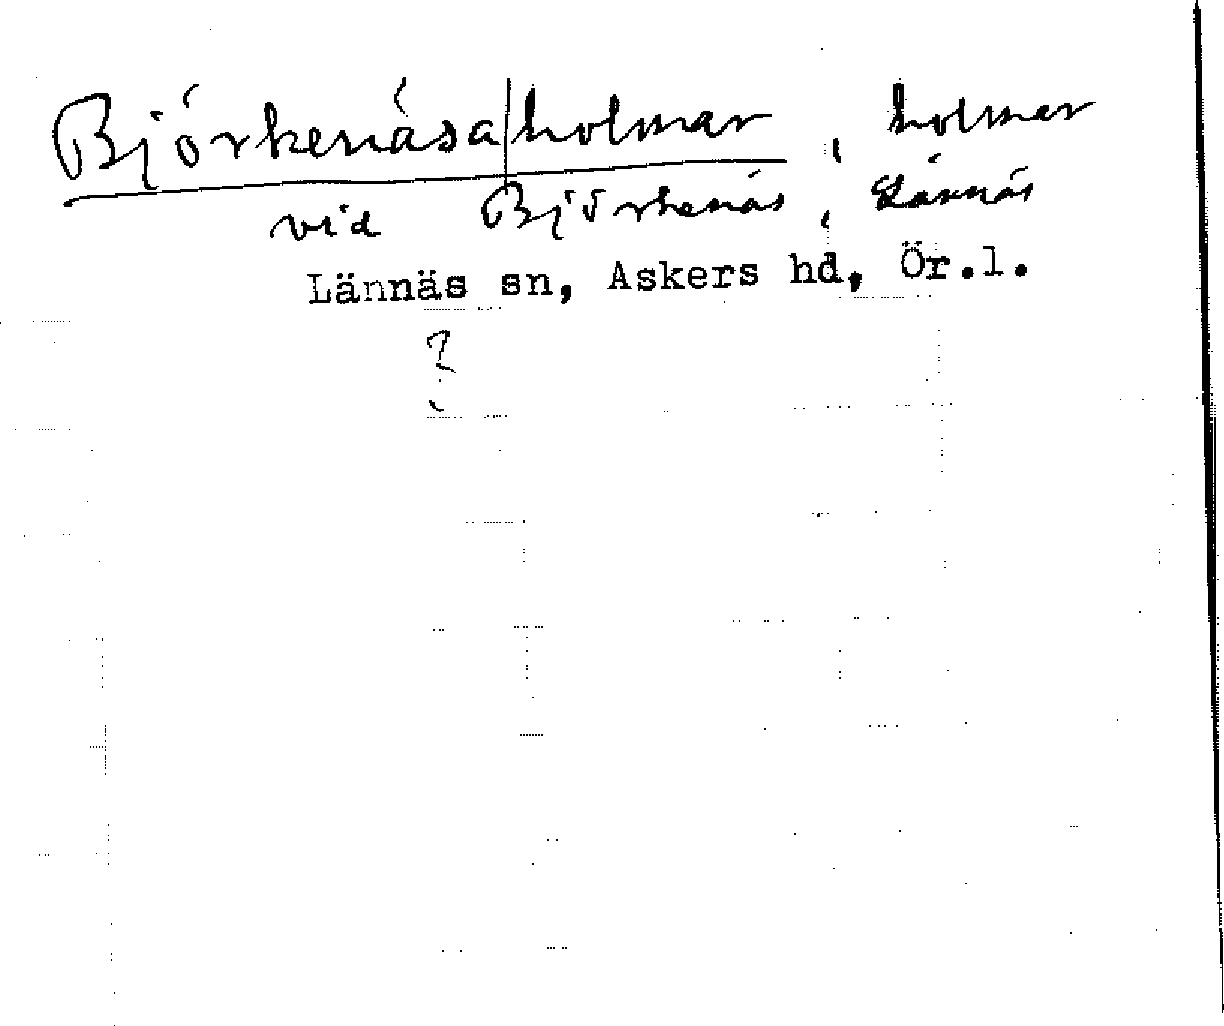 Björkenäsa|holmar, holmar
vid Björkenäs, Lännäs
Lännäs sn, Askers hd, Ör.l.
?